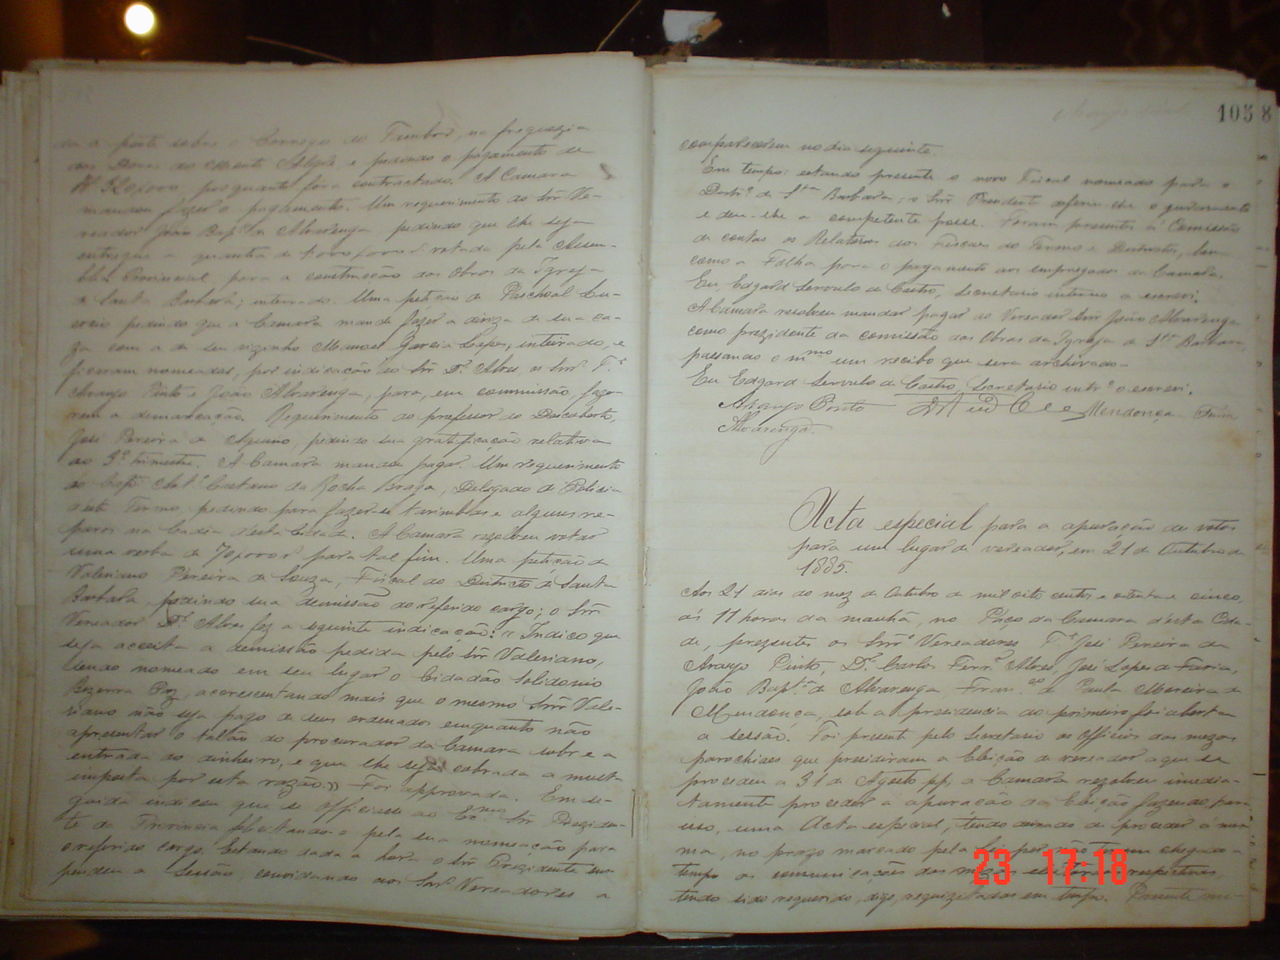 a ponte sobre o Corrego do Trombos, na freguezia
das Dores do Monte Alegre e pedindo o pagamento de
porquanto fôra contractado. A Camara
mandou fazer o pagamento. Um requerimento do Snr Ve-
reador João Bapta Alvarenga, pedindo que lhe seja
entregue a quantia de votada pela Assem-
bléa Provincial, para a construcção das Obras da Igreja
de Santa Barbara; inteirado. Uma petição de Paschoal
pedindo que a Camara mande fazer a diviza de sua ca-
za com a de seu vizinho Manoel Garcia Lopes, inteirado, e
ficaram nomeados, por indicação do Snr Dr Alves, os Snrs Te
Araujo Pinto e João Alvarenga, para, em commissão, faze-
rem a demarcação. Requerimento do professor do Descoberto,
José Pereira de Aquino, pedindo sua gratificação relativa
ao 3º trimestre. A Camara mandou pagar. Um requerimento
do Capm Anto Caetano da Rocha Braga, Delegado de Policia
deste Termo pedindo para fazer-se tarimbas e alguns re-
paros na Cadia desta Cidade. A Camara rezolveu votar
uma verba de 70$000 para tal fim. Uma petição de
Valeriano Pereira de Souza, Fiscal do Districto de Santa
Barbara, pedindo sua demissão do referido cargo; o Snr
Vereador Dr Alves fez a seguinte indicação: "Indico que
seja acceita a demissão pedida pelo Snr Valeriano,
sendo nomeado em seu lugar o Cidadão Solidonio
Bezerra Paz, acrescentando mais que o mesmo Snr Vale-
riano não seja pago de seus ordenados emquanto não
apresentar o talão do procurador da Camara sobre a
entrada do dinheiro, e que lhe seja cobrada a multa
imposta por esta razão." Foi approvada. Em se-
guida indicou que se officiasse ao Exmo Snr Preziden-
te da Provincia solicitando-o pela sua nomeação para
o referido cargo. Estando dada a hora o Snr Prezidente sus-
pendeu a Sessão, convidando aos Snrs Vereadores a
1058
comparecerem no dia seguinte.
Em tempo: estando presente o novo Fiscal nomeado para o
Destro de Sta Barbara; o Snr Presidente deferiu-lhe o juramento
e deu-lhe a competente posse. Foram presentes á Comissão
de contas os Relatorios dos Fiscaes do Termo e Districtos, bem
como a Folha para o pagamento aos empregados da Camara.
Eu, Edgard Servulo de Castro, Secretario interino a escrevi.
A Camara resolveu mandar pagar ao Vereador Snr João Alvarenga
como prezidente da comissão das Obras da Igreja de Sta Barbara,
passando o mmo um recibo que será archivado.
Eu Edgard Servulo de Castro, Secretario intro o escrevi.
Araujo Pinto Mendonça Faria
Alvarenga.
Acta especial para a apuração de votos
para um lugar de vereador, em 21 de Outubro de
1885.
Aos 21 dias do mez de Outubro de mil oito centos e oitenta e cinco,
ás 11 horas da manhã, no Paço da Camara d'esta Cida-
de, prezentes os Snrs Vereadores, Te José Pereira de
Araujo Pinto, Dr Carlos Ferra Alves, José Lopes de Faria,
João Bapta de Alvarenga Franco de Paula Moreira de
Mendonça, sob a presidencia do primeiro foi aberta
a sessão. Foi presente pelo Secretario os officios das mezas
parochiaes que presidiram a Eleição de vereador a que se
procedeu a 31 de Agosto pp, a Camara rezolveu immedia-
tamente proceder a apuração da Eleição fazendo, para
isso, uma Acta especial, deixado de proceder á mes-
ma, no prazo marcado pela Lei por não terem chegado a
tempo as comunicações das mezas eleitoraes respectivas,
tendo sido requerido, digo, requizitadas em tempo.
23 17:18